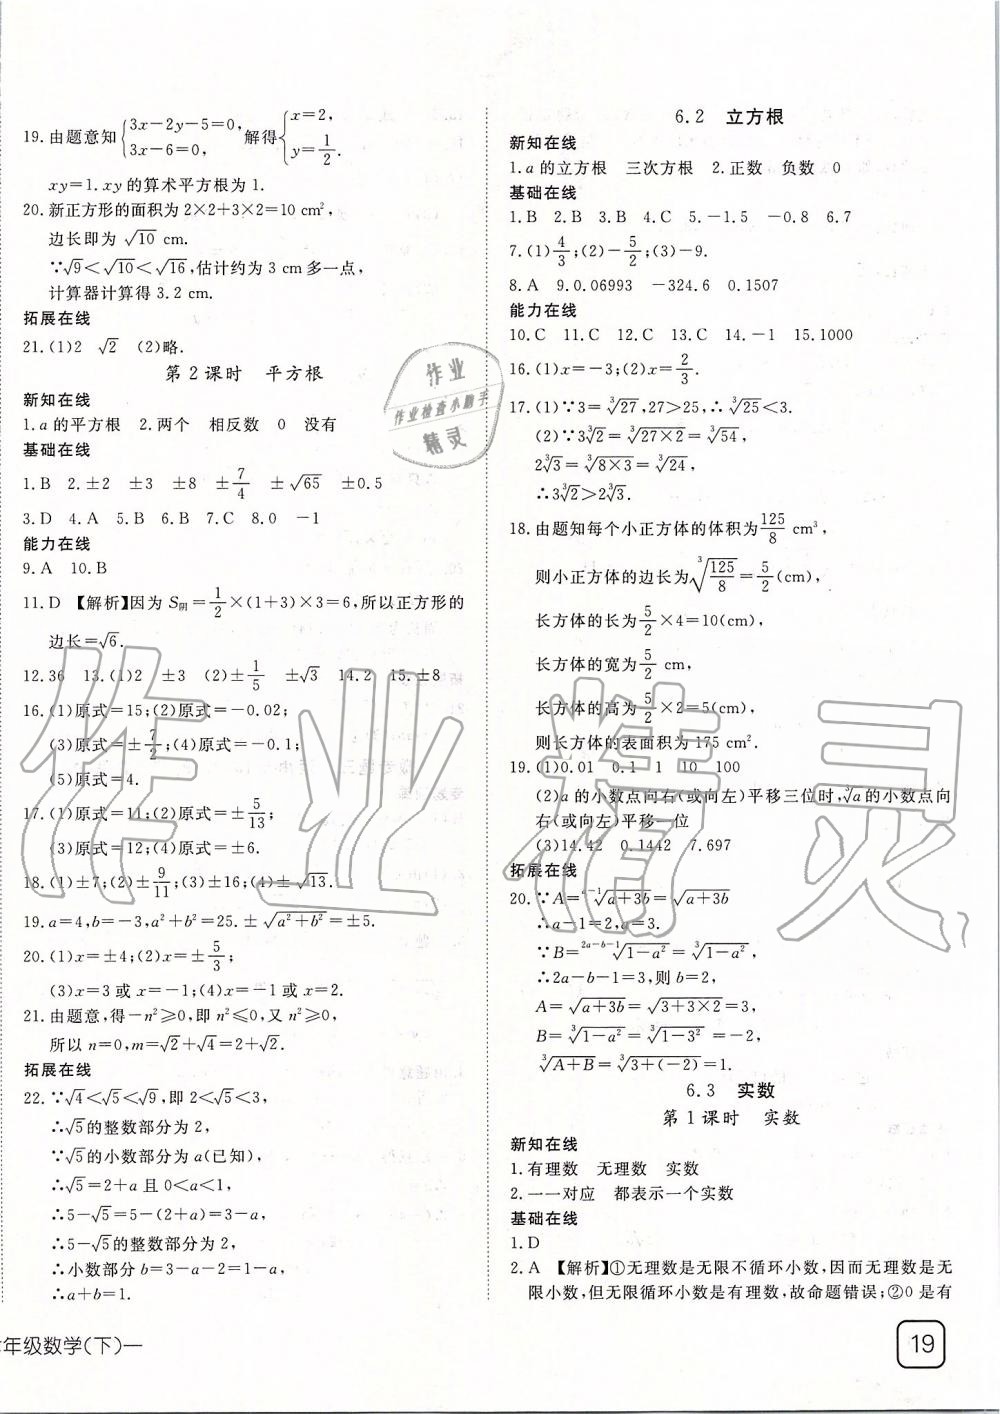 19.由题意知{3x-2y-5=0, 3x-6=0, 解得{x=2, y=1/2.
xy=1.xy的算术平方根为1.
20.新正方形的面积为2×2+3×2=10 cm²,
边长即为√10 cm.
∵√9<√10<√16,估计约为3 cm多一点,
计算器计算得3.2 cm.
拓展在线
21.(1)2 √2 (2)略.
第2课时 平方根
新知在线
1.a的平方根 2.两个 相反数 0 没有
基础在线
1.B 2.±2 ±3 ±8 ±7/4 ±√65 ±0.5
3.D 4.A 5.B 6.B 7.C 8.0 -1
能力在线
9.A 10.B
11.D 【解析】因为S阴=1/2×(1+3)×3=6,所以正方形的
边长=√6.
12.36 13.(1)2 ±3 (2)±1/5 ±√3 14.2 15.±8
16.(1)原式=15;(2)原式=-0.02;
(3)原式=±7/2;(4)原式=-0.1;
(5)原式=4.
17.(1)原式=11;(2)原式=±5/13;
(3)原式=12;(4)原式=±6.
18.(1)±7;(2)±9/11;(3)±16;(4)±√13.
19.a=4,b=-3,a²+b²=25.±√(a²+b²)=±5.
20.(1)x=±4;(2)x=±5/3;
(3)x=3或x=-1;(4)x=-1或x=2.
21.由题意,得-n²≥0,即n²≤0,又n²≥0,
所以n=0,m=√2+√4=2+√2.
拓展在线
22.∵√4<√5<√9,即2<√5<3,
∴√5的整数部分为2,
∵√5的小数部分为a(已知),
∴√5=2+a且0<a<1,
∴5-√5=5-(2+a)=3-a,
∴5-√5的整数部分为2,
∴小数部分b=3-a-2=1-a,
∴a+b=1.
年级数学(下)—
6.2 立方根
新知在线
1.a的立方根 三次方根 2.正数 负数 0
基础在线
1.B 2.B 3.B 4.C 5.-1.5 -0.8 6.7
7.(1)4/3;(2)-5/2;(3)-9.
8.A 9.0.06993 -324.6 0.1507
能力在线
10.C 11.C 12.C 13.C 14.-1 15.1000
16.(1)x=-3;(2)x=2/3.
17.(1)∵3=³√27,27>25,∴³√25<3.
(2)∵3³√2=³√(27×2)=³√54,
2³√3=³√(8×3)=³√24,
∴3³√2>2³√3.
18.由题知每个小正方体的体积为125/8 cm³,
则小正方体的边长为³√(125/8)=5/2(cm),
长方体的长为5/2×4=10(cm),
长方体的宽为5/2 cm,
长方体的高为5/2×2=5(cm),
则长方体的表面积为175 cm².
19.(1)0.01 0.1 1 10 100
(2)a的小数点向右(或向左)平移三位时,³√a的小数点向
右(或向左)平移一位
(3)14.42 0.1442 7.697
拓展在线
20.∵A=ᵃ⁻¹√(a+3b)=√(a+3b)
∴a-1=2,a=3.
∵B=²ᵃ⁻ᵇ⁻¹√(1-a²)=³√(1-a²),
∴2a-b-1=3,则b=2,
A=√(a+3b)=√(3+3×2)=3,
B=³√(1-a²)=³√(1-3²)=-2.
³√(A+B)=³√(3+(-2))=1.
6.3 实数
第1课时 实数
新知在线
1.有理数 无理数 实数
2.一一对应 都表示一个实数
基础在线
1.D
2.A 【解析】①无理数是无限不循环小数,因而无理数是无
限小数,但无限循环小数是有理数,故命题错误;②0是有
19
作业
作业检查小助手
精灵
作业精灵